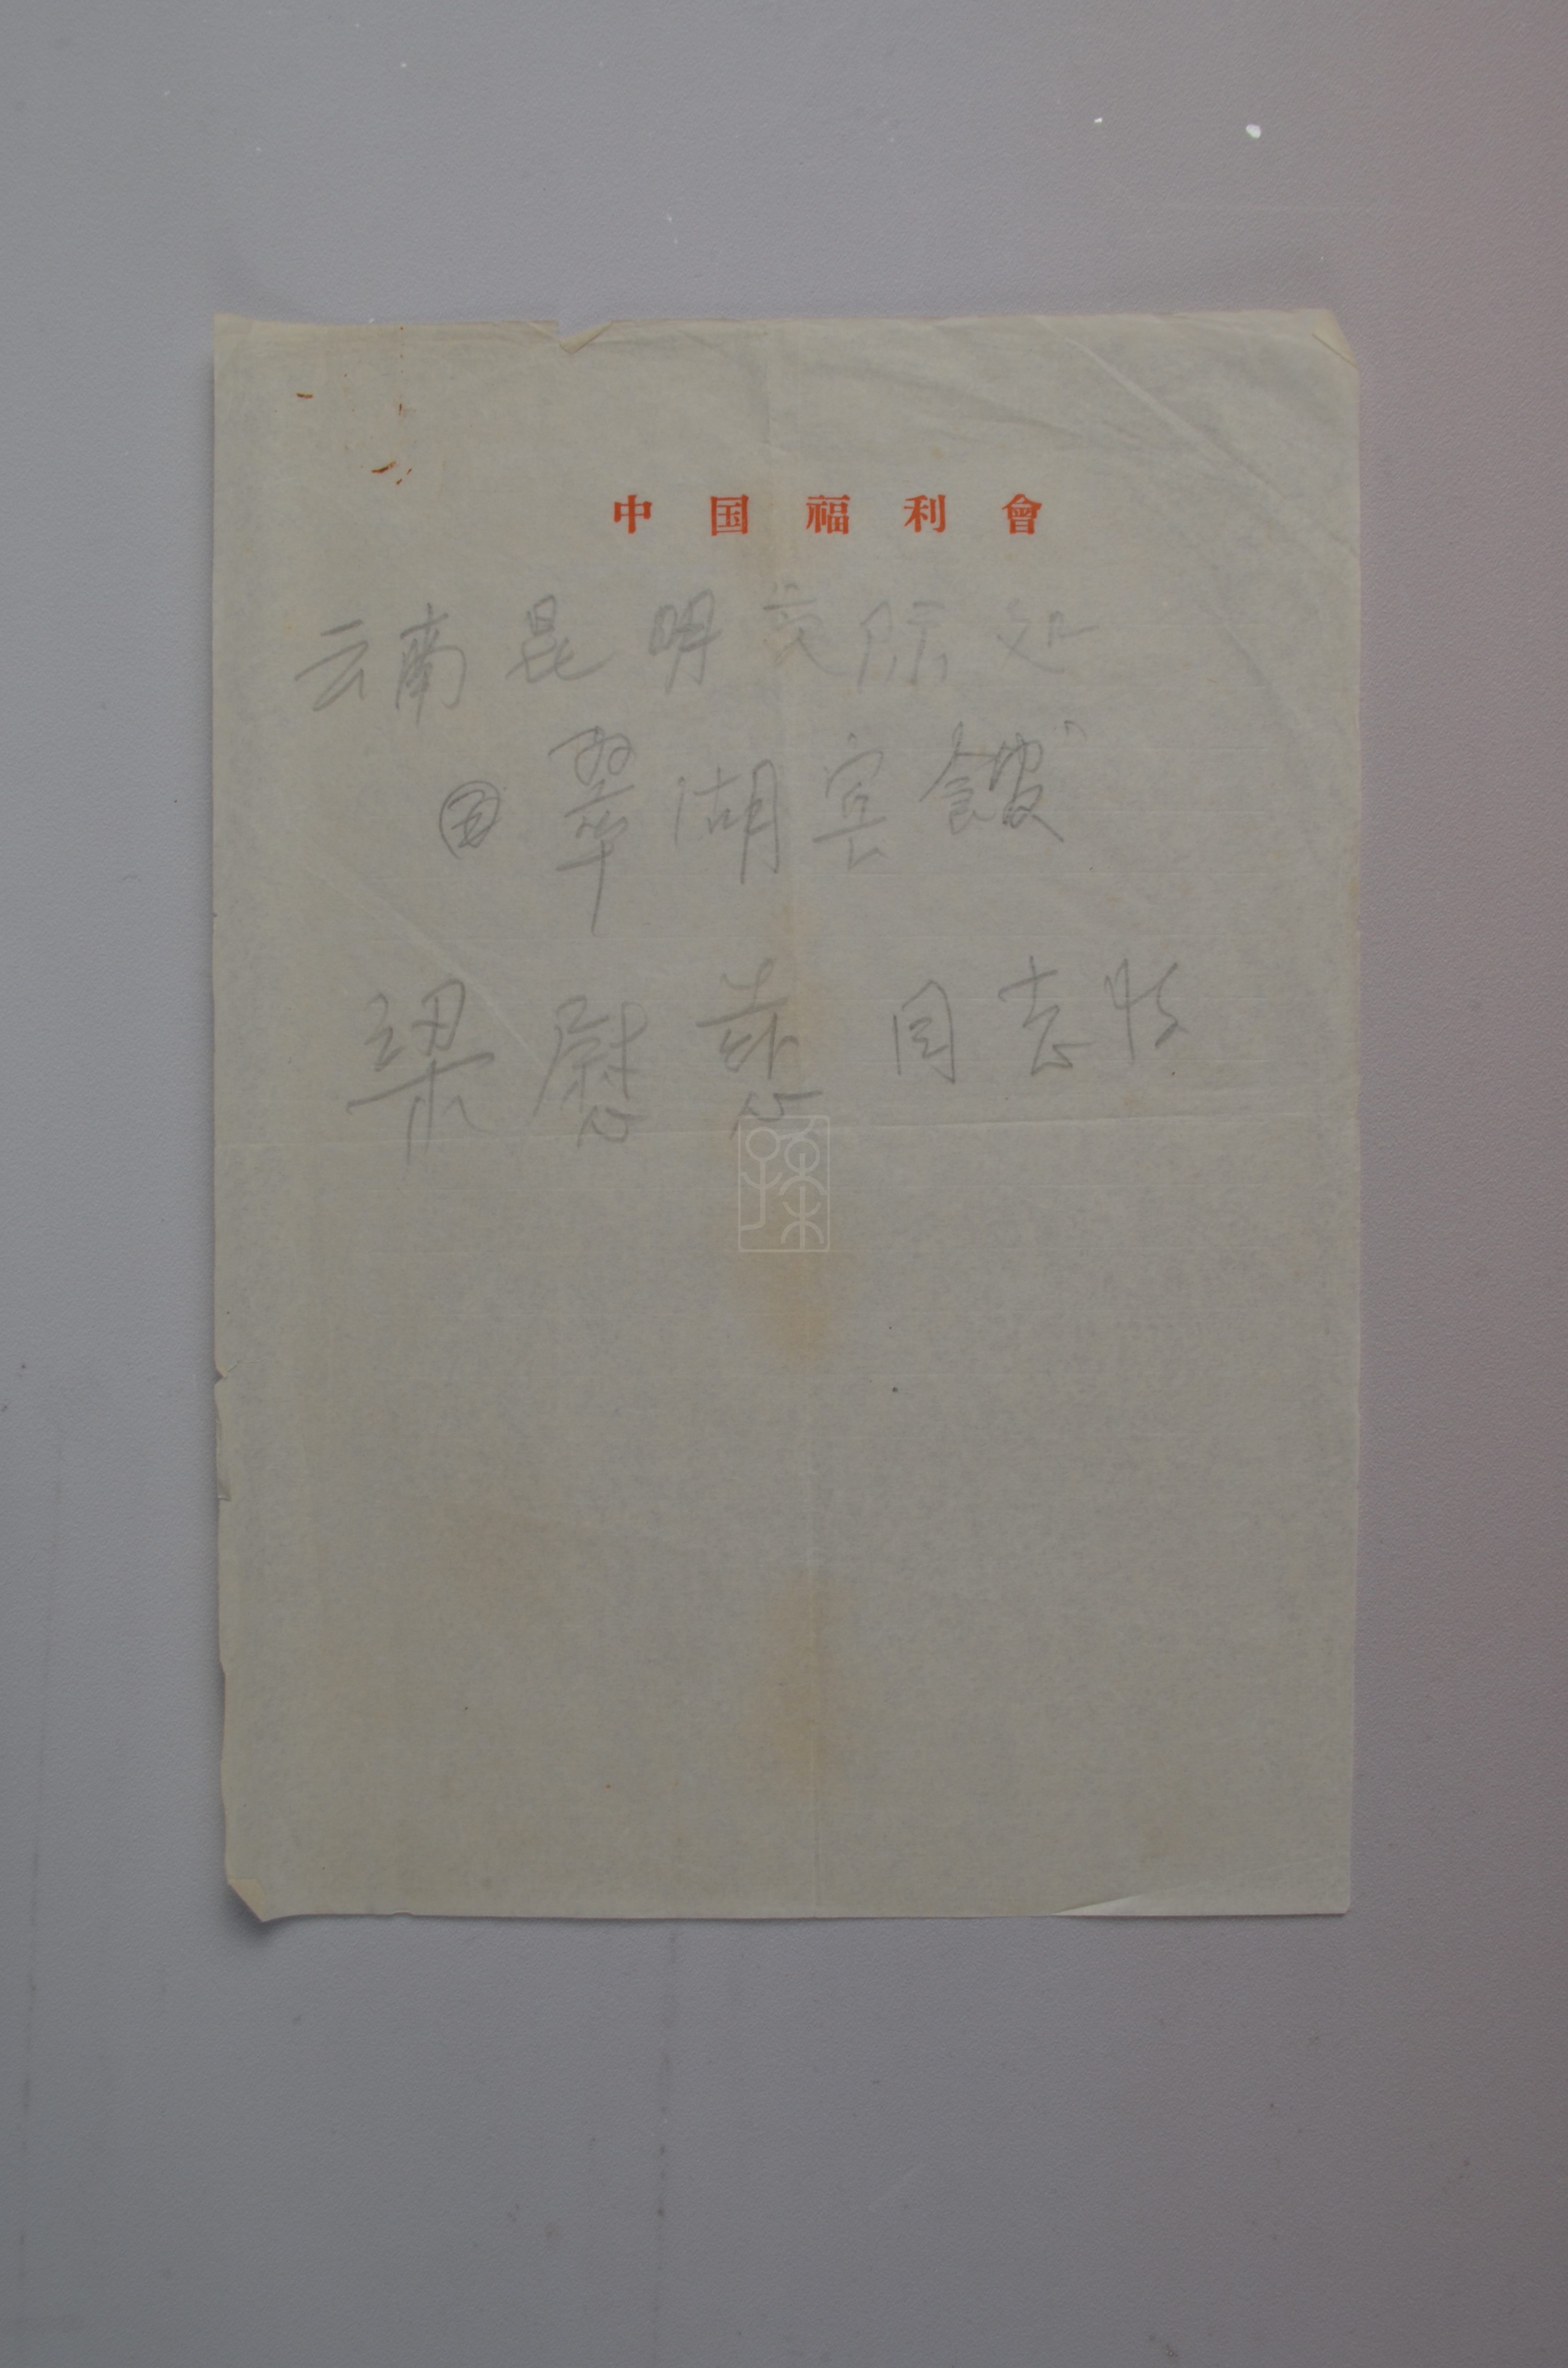 中国福利會
云南昆明交际处
翠湖宾館
梁慰慈同志收